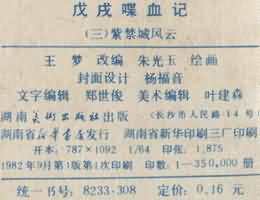 戊戌喋血记
(三)紫禁城风云
王梦 改编 朱光玉 绘画
封面设计 杨福音
文字编辑 郑世俊 美术编辑 叶建森
湖南美术出版社出版 (长沙市人民路14号)
湖南省新华书店发行 湖南省新华印刷三厂印刷
开本:787×1092 1/64 印张:1.875
1982年9月第1版第1次印刷 印数:1—350,000册
统一书号:8233·308 定价:0.16元